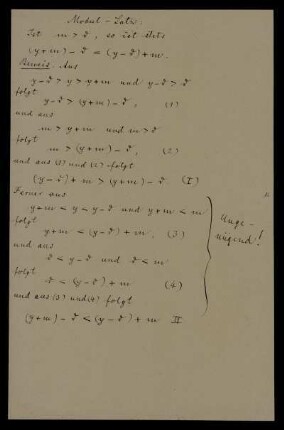 Modul-Satz.
Ist m > d, so ist stets
(y+m) - d = (y-d)+m.
Beweis. Aus
y-d > y > y+m und y-d > d
folgt
y-d > (y+m)-d, (1)
und aus
m > y+m und m > d
folgt
m > (y+m)-d, (2)
und aus (1) und (2) folgt
(y-d)+m > (y+m)-d (I)
Ferner aus
y+m < y < y-d und y+m < m
folgt
y+m < (y-d)+m. (3)
und aus
d < y-d und d < m
folgt
d < (y-d)+m (4)
und aus (3) und (4) folgt
(y+m)-d < (y-d)+m II
Unge-
nügend!